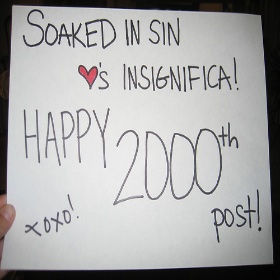 SOAKED IN SIN
♥'s INSIGNIFICA!
HAPPY 2000th
xoxo! post!